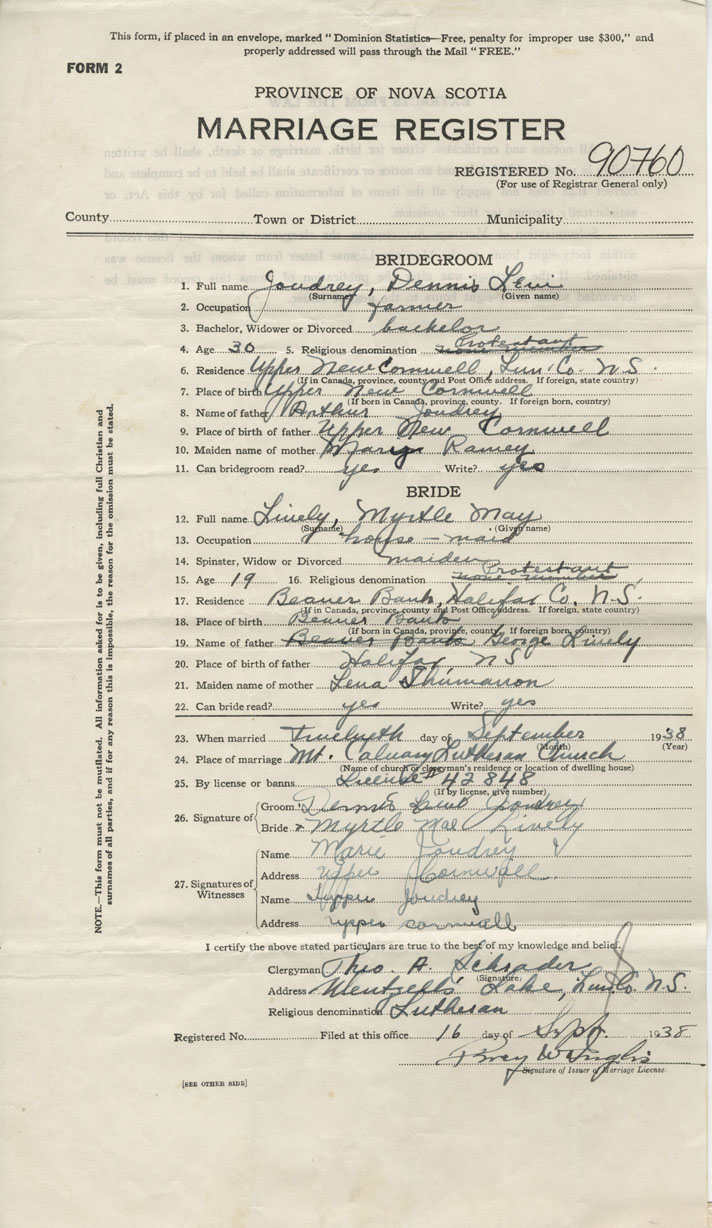 This form, if placed in an envelope, marked "Dominion Statistics—Free, penalty for improper use $300," and
properly addressed will pass through the Mail "FREE."
FORM 2
PROVINCE OF NOVA SCOTIA
MARRIAGE REGISTER
REGISTERED No. 90760
(For use of Registrar General only)
County Town or District Municipality
BRIDEGROOM
1. Full name Joudrey, Dennis Levi
(Surname) (Given name)
2. Occupation farmer
3. Bachelor, Widower or Divorced bachelor
4. Age 30 5. Religious denomination none member Protestant
6. Residence Upper New Cornwell, Lun. Co. N.S.
(If in Canada, province, county and Post Office address. If foreign, state country)
7. Place of birth Upper New Cornwell
(If born in Canada, province, county. If foreign born, country)
8. Name of father Arthur Joudrey
9. Place of birth of father Upper New Cornwell
10. Maiden name of mother Mary Ramey
11. Can bridegroom read? yes Write? yes
BRIDE
12. Full name Lively, Myrtle May
(Surname) (Given name)
13. Occupation house-maid
14. Spinster, Widow or Divorced maiden
15. Age 19 16. Religious denomination none member Protestant
17. Residence Beaver Bank, Halifax Co. N.S.
(If in Canada, province, county and Post Office address. If foreign, state country)
18. Place of birth Beaver Bank
(If born in Canada, province, county. If foreign born, country)
19. Name of father Beaver Bank George Lively
20. Place of birth of father Halifax, N S
21. Maiden name of mother Lena
22. Can bride read? yes Write? yes
23. When married twelveth day of September 1938
(Month) (Year)
24. Place of marriage Mt. Calvary Lutheran Church
(Name of church or clergyman's residence or location of dwelling house)
25. By license or banns License # 42848
(If by license, give number)
26. Signature of Groom Dennis Levi Joudrey
Bride x Myrtle Mae Lively
27. Signatures of Witnesses
Name Marie Joudrey
Address Upper Cornwall
Name Tupper Joudrey
Address upper cornwall
I certify the above stated particulars are true to the best of my knowledge and belief.
Clergyman Theo. A. Schrader
(Signature)
Address Wentzell's Lake, Lun. Co. N.S.
Religious denomination Lutheran
Registered No. Filed at this office 16 day of Sept. 1938
W Inglis
Signature of Issuer of Marriage License.
[SEE OTHER SIDE]
NOTE.—This form must not be mutilated. All information asked for is to be given, including full Christian and
surnames of all parties, and if for any reason this is impossible, the reason for the omission must be stated.